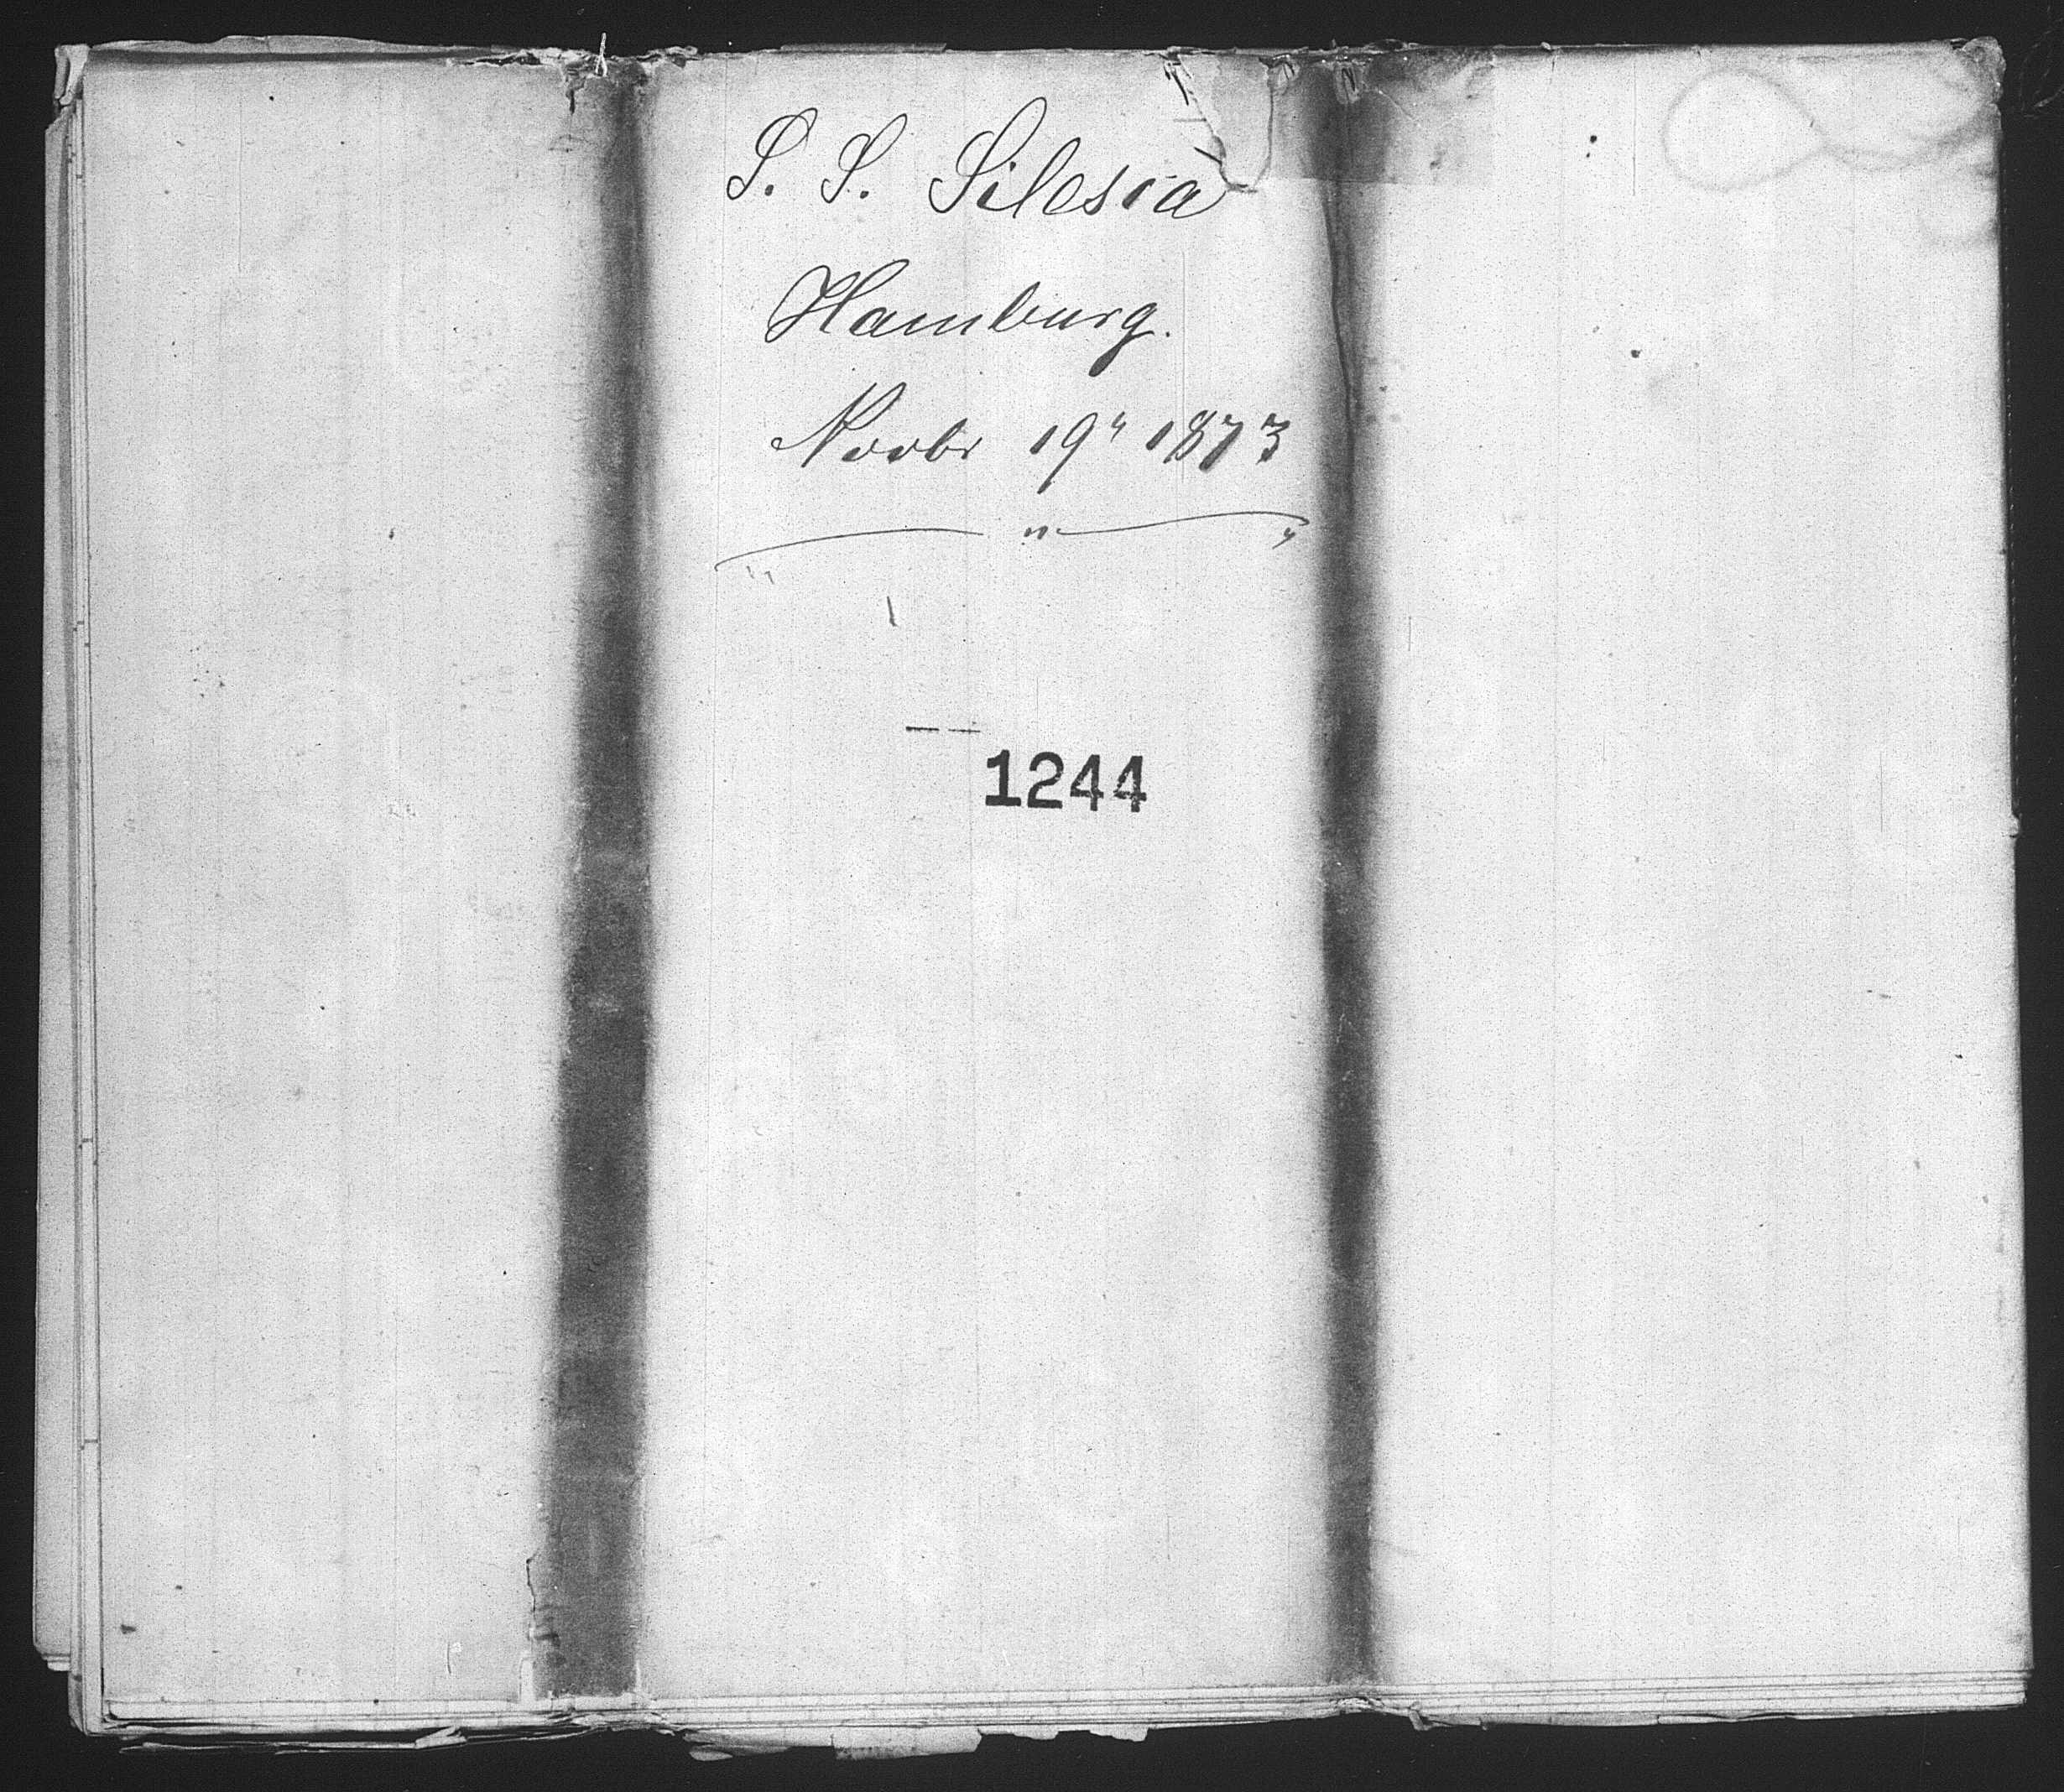 S. S. Silesia
Hamburg.
Novbr 19" 1873
1244